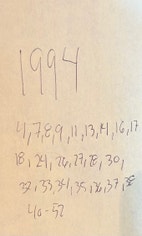 1994
4,7,8,9,11,13,14,16,17
18,24,26,27,28,30,
32,33,34,35,36,37,38
40-52